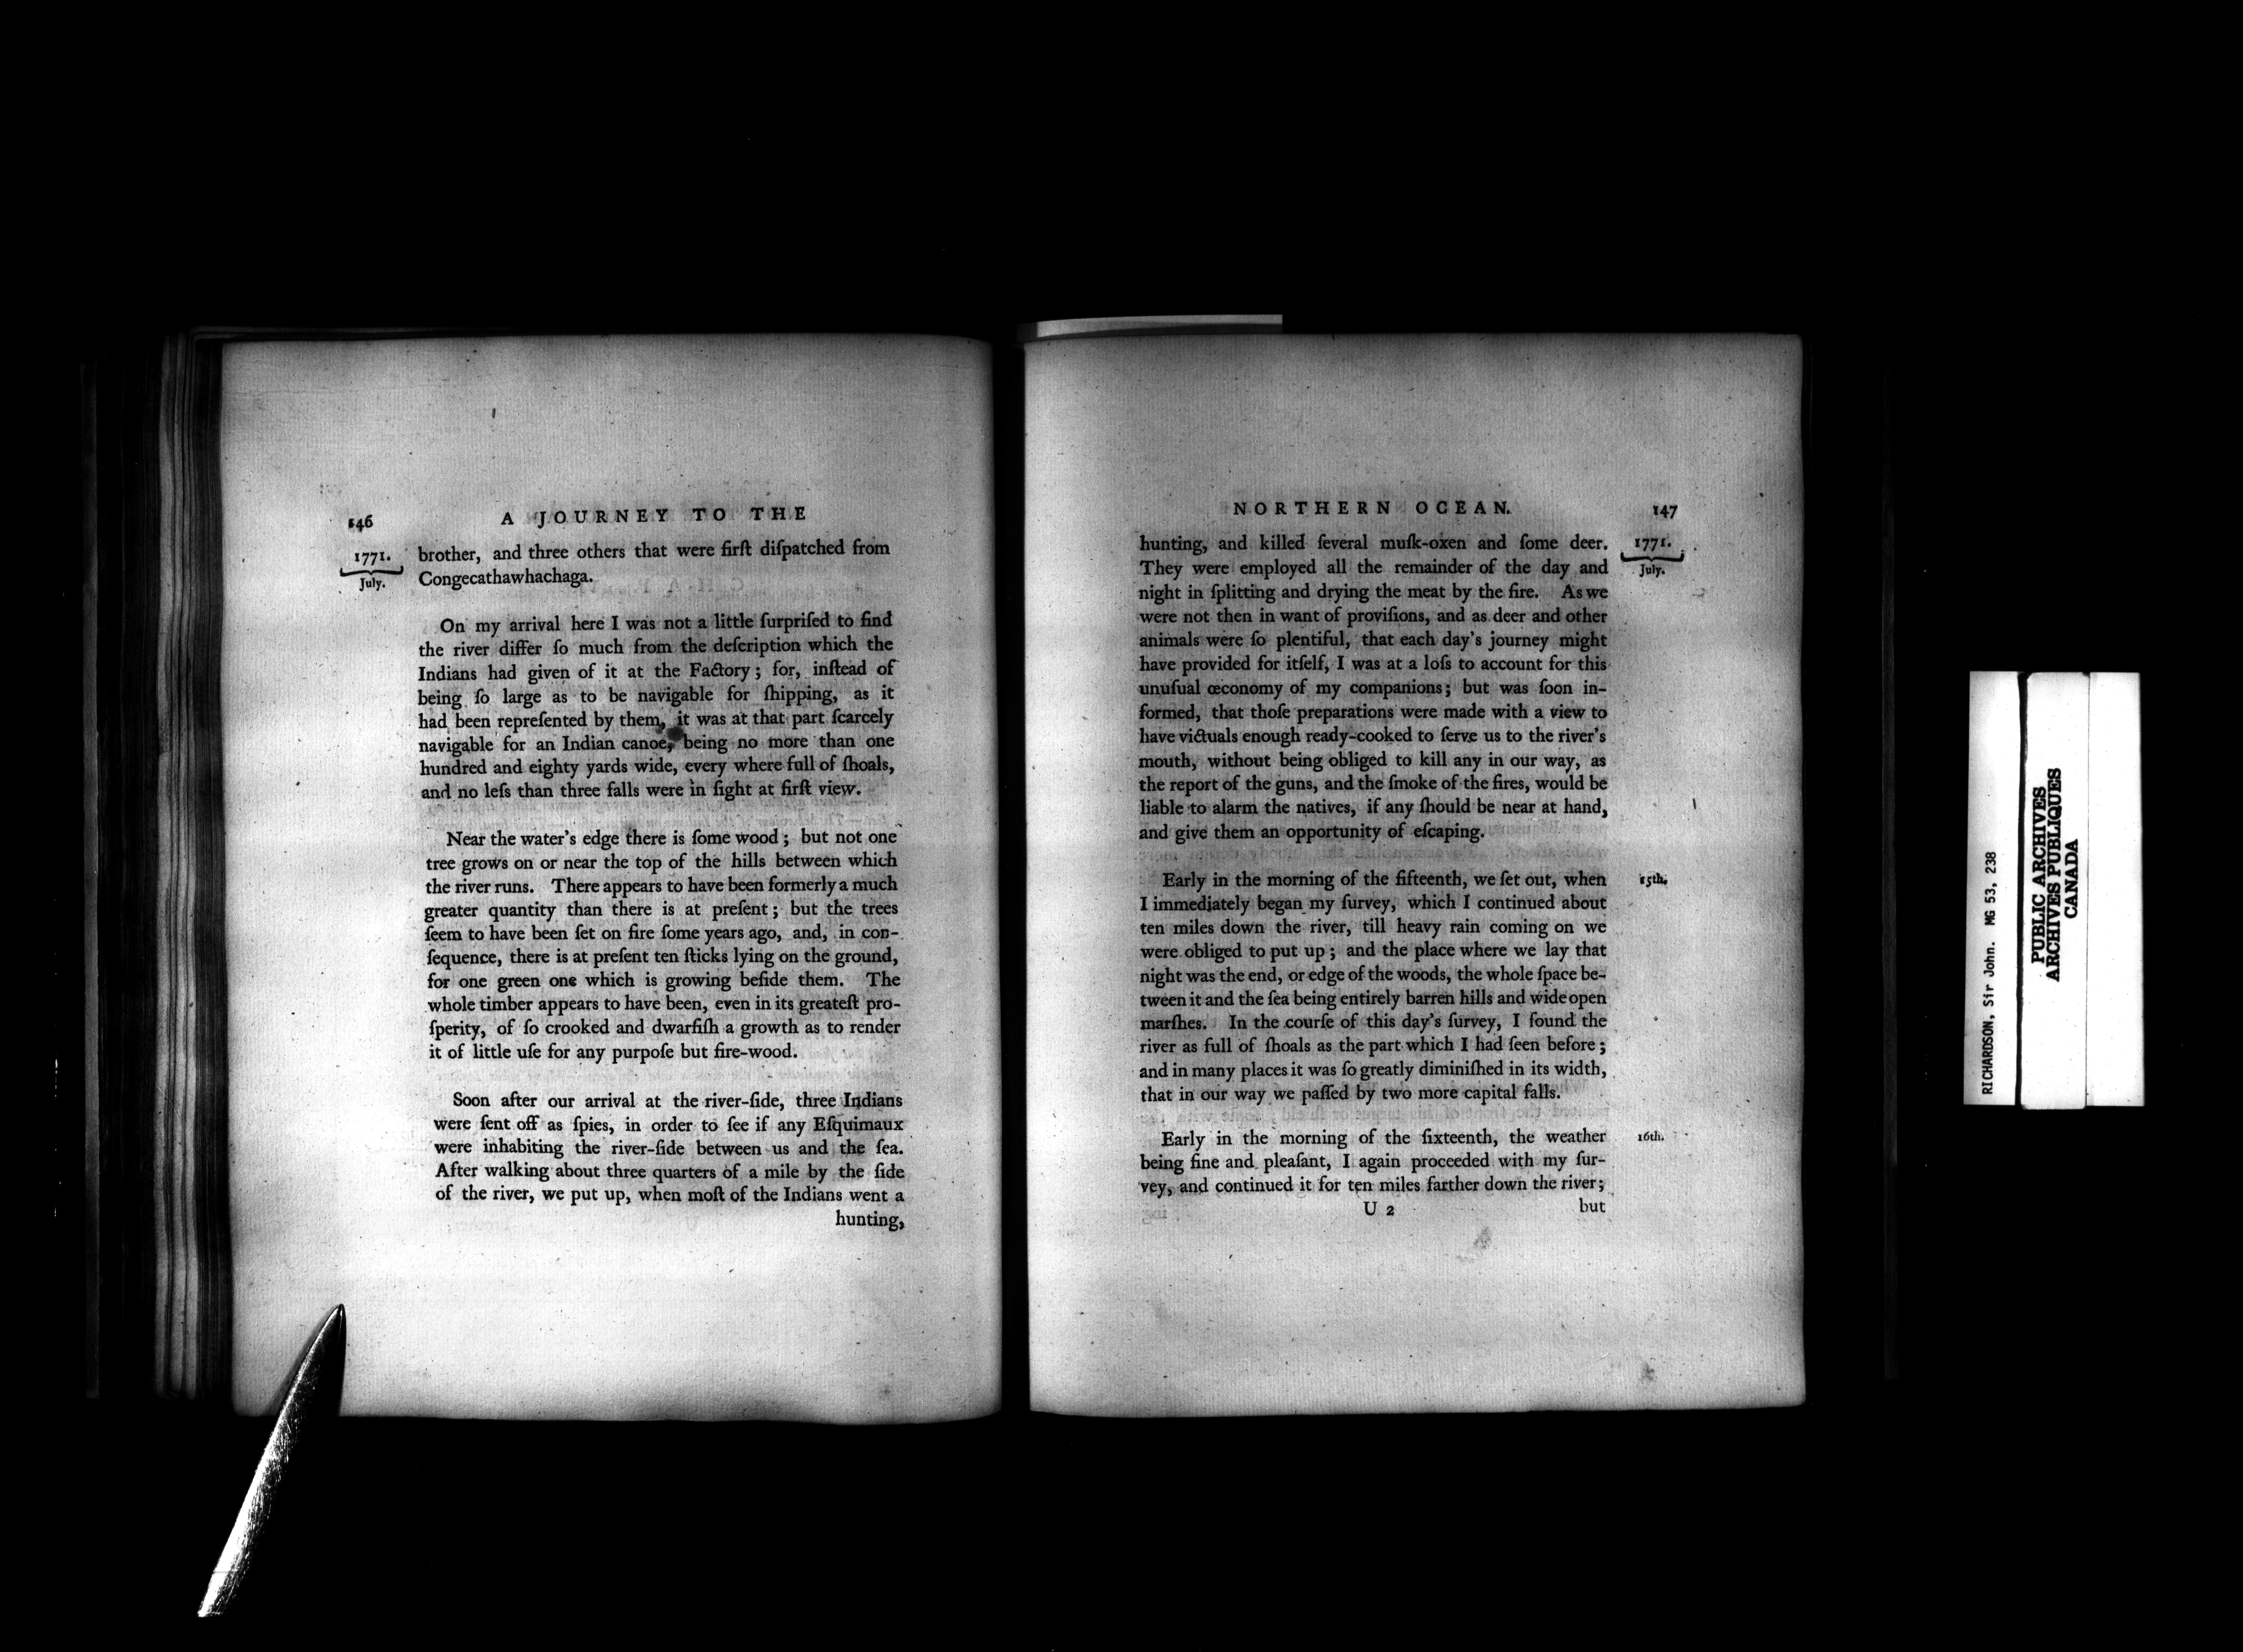 146 A JOURNEY TO THE
1771.
July.
brother, and three others that were firſt diſpatched from
Congecathawhachaga.
On my arrival here I was not a little ſurpriſed to find
the river differ ſo much from the deſcription which the
Indians had given of it at the Factory; for, inſtead of
being ſo large as to be navigable for ſhipping, as it
had been repreſented by them, it was at that part ſcarcely
navigable for an Indian canoe, being no more than one
hundred and eighty yards wide, every where full of ſhoals,
and no leſs than three falls were in ſight at firſt view.
Near the water's edge there is ſome wood; but not one
tree grows on or near the top of the hills between which
the river runs. There appears to have been formerly a much
greater quantity than there is at preſent; but the trees
ſeem to have been ſet on fire ſome years ago, and, in con-
ſequence, there is at preſent ten ſticks lying on the ground,
for one green one which is growing beſide them. The
whole timber appears to have been, even in its greateſt pro-
ſperity, of ſo crooked and dwarfiſh a growth as to render
it of little uſe for any purpoſe but fire-wood.
Soon after our arrival at the river-ſide, three Indians
were ſent off as ſpies, in order to ſee if any Eſquimaux
were inhabiting the river-ſide between us and the ſea.
After walking about three quarters of a mile by the ſide
of the river, we put up, when moſt of the Indians went a
hunting,
NORTHERN OCEAN. 147
1771.
July.
hunting, and killed ſeveral muſk-oxen and ſome deer.
They were employed all the remainder of the day and
night in ſplitting and drying the meat by the fire. As we
were not then in want of proviſions, and as deer and other
animals were ſo plentiful, that each day's journey might
have provided for itſelf, I was at a loſs to account for this
unuſual œconomy of my companions; but was ſoon in-
formed, that thoſe preparations were made with a view to
have victuals enough ready-cooked to ſerve us to the river's
mouth, without being obliged to kill any in our way, as
the report of the guns, and the ſmoke of the fires, would be
liable to alarm the natives, if any ſhould be near at hand,
and give them an opportunity of eſcaping.
Early in the morning of the fifteenth, we ſet out, when 15th.
I immediately began my ſurvey, which I continued about
ten miles down the river, till heavy rain coming on we
were obliged to put up; and the place where we lay that
night was the end, or edge of the woods, the whole ſpace be-
tween it and the ſea being entirely barren hills and wide open
marſhes. In the courſe of this day's ſurvey, I found the
river as full of ſhoals as the part which I had ſeen before;
and in many places it was ſo greatly diminiſhed in its width,
that in our way we paſſed by two more capital falls.
Early in the morning of the ſixteenth, the weather 16th.
being fine and pleaſant, I again proceeded with my ſur-
vey, and continued it for ten miles farther down the river;
U 2 but
RICHARDSON, Sir John. MG 53, 238
PUBLIC ARCHIVES
ARCHIVES PUBLIQUES
CANADA